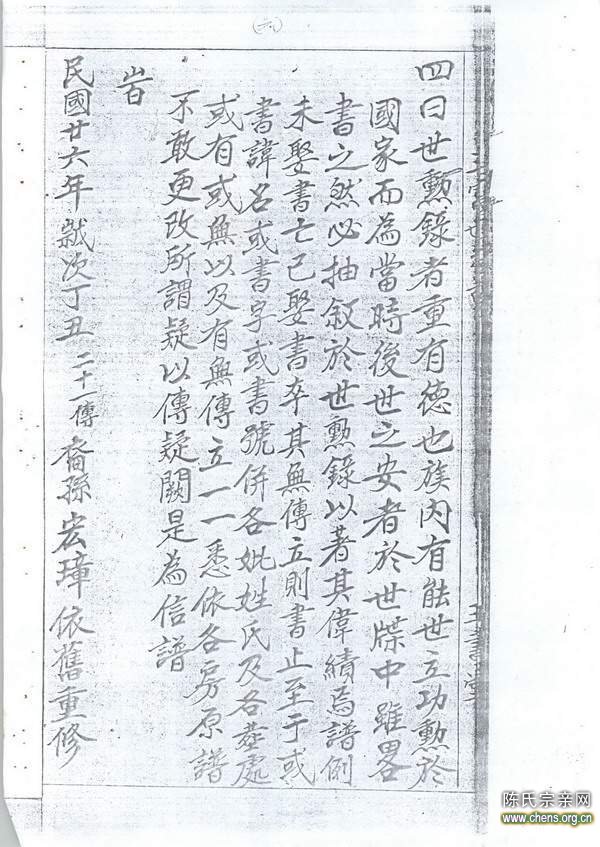 (六)
四曰世勳錄者重有德也族內有能世立功勳於
國家而為當時後世之安者於世牒中雖畧
書之然必抽叙於世勳錄以著其偉績焉譜例
未娶書亡已娶書卒其無傳立則書止至于或
書諱名或書字或書號併各妣姓氏及各塟處
或有或無以及有無傳立一一悉依各房原譜
不敢更改所謂疑以傳疑闕是為信譜
旹
民國廿六年歲次丁丑二十一傳裔孫宏璋依舊重修
陈氏宗亲网
www.chens.org.cn